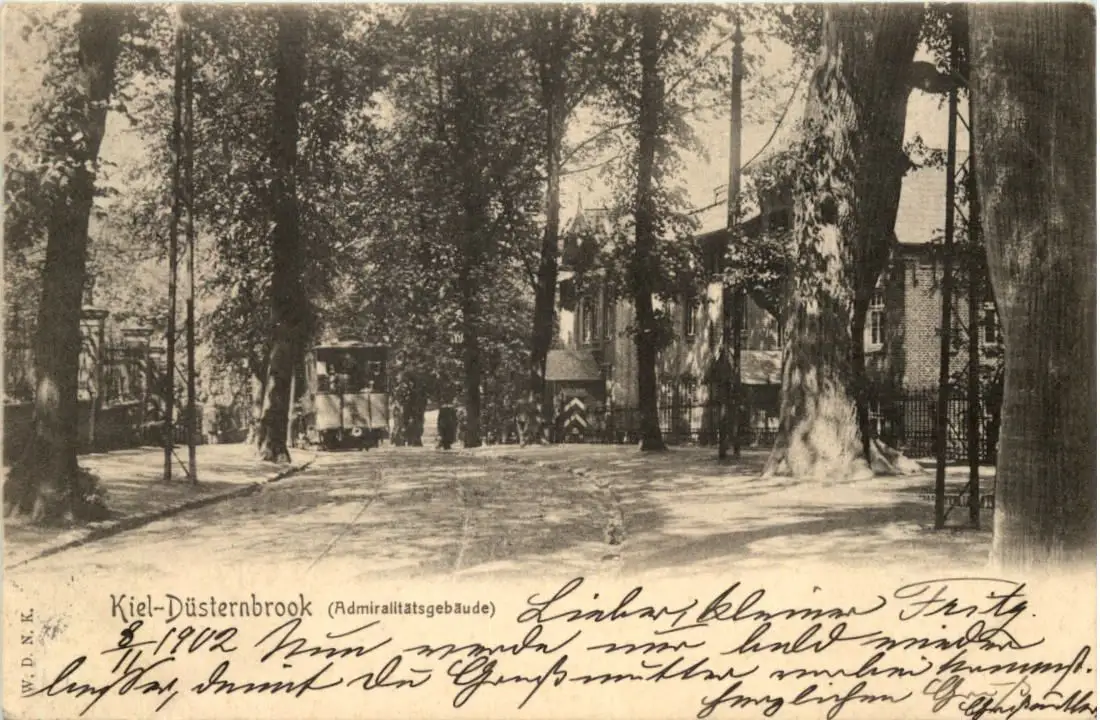 Kiel-Düsternbrook (Admiralitätsgebäude)
Lieber, kleiner Fritz.
8/11 1902 Nun werde nur bald wieder
besser, damit Du Großmutter kommst.
herzlichen Gruß
Großmutter
W. D. N. K.